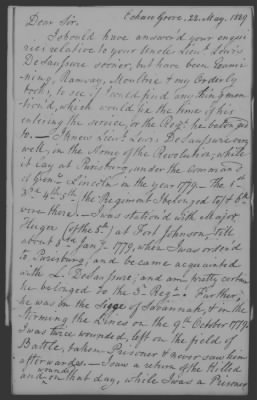 Echaw Grove, 22. May. 1829
Dear Sir.
I should have answer'd your enqui
ries relative to your Uncle Lieut. Lewis
DeSaussure sooner, but have been Exami
ning, Ramsay, Moultrie & my Orderly
books, to see if I could find any thing men
tion'd, which would fix the time of his
entering the service, or the Regt. he belonged
to. — I knew Lieut. Lewis DeSaussure very
well, in the Army of the Revolution, while
it lay at Purisburg, under the command
of Genl. Lincoln in the year 1779 — The 1st
3rd. 4th 5th, the Regiment I belonged to & 6th
were there. — I was station'd with Major
Huger (of the 5th) at Fort Johnson, till
about 5th Jany. 1779, when I was order'd
to Purisburg; and became acquainted
with L. DeSaussure; and am pretty certain
he belonged to the 3rd. Regt. Further,
he was in the Siege of Savannah, & in the
storming the Lines on the 9th October 1779.
I was three wounded, left on the field of
Battle, taken Prisoner & never saw him
afterwards. — I saw a return of the Killed
and wounded on that day, while I was a Prisoner